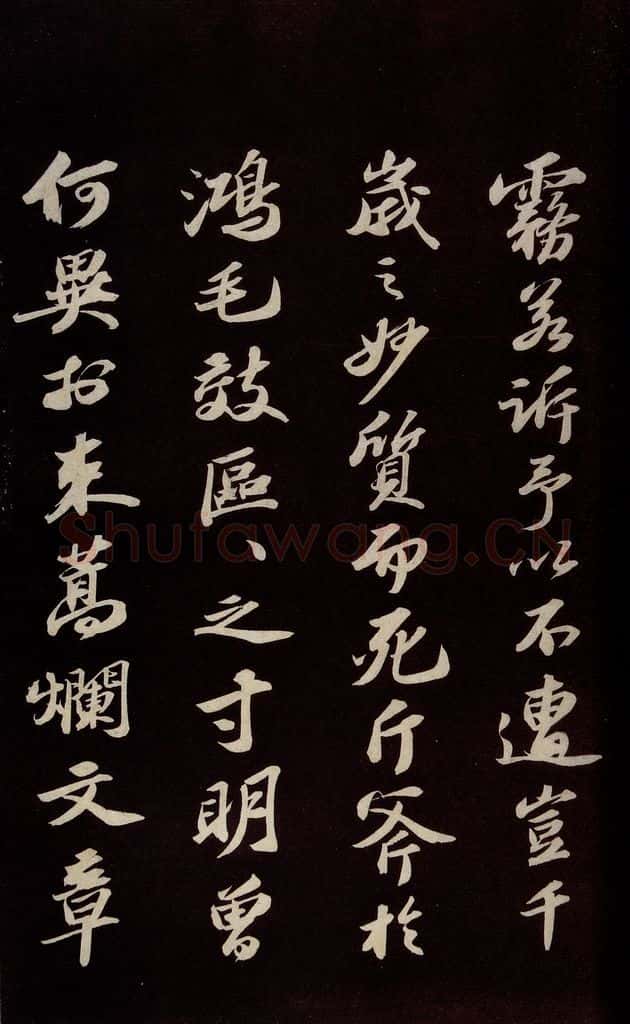 霧若訴予以不遭豈千
歲之妙質而死斤斧於
鴻毛效區、之寸明曾
何異於束蒿爛文章
Shufawang.CN